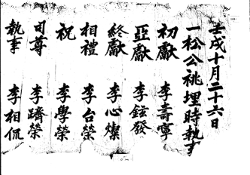 壬戌十月二十六日
一松公祧埋時執事
初獻 李壽寧
亞獻 李鉉發
終獻 李心燦
相禮 李台榮
祝 李學榮
司尊 李躋榮
執事 李相侃